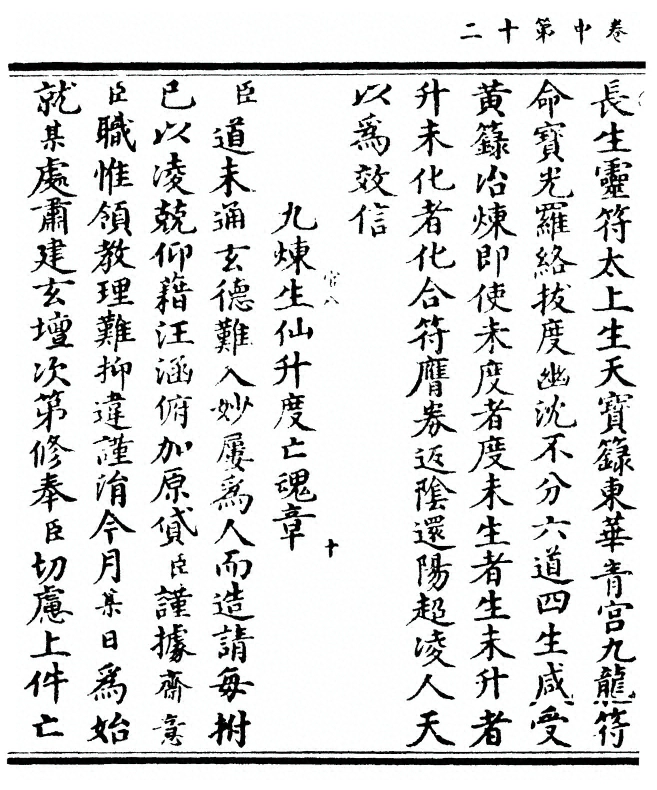 卷中第十二
長生靈符太上生天寶籙東華青宮九龍符
命寶光羅絡拔度幽沈不分六道四生咸受
黃籙冶煉即使未度者度未生者生未升者
升未化者化合符膺券返陰還陽超凌人天
以爲效信
官八
九煉生仙升度亡魂章 十
臣道未通玄德難入妙屢爲人而造請每拊
已以凌兢仰籍汪涵俯加原貸臣謹據齋意
臣職惟領教理難抑違謹涓今月某日爲始
就某處肅建玄壇次第修奉臣切慮上件亡